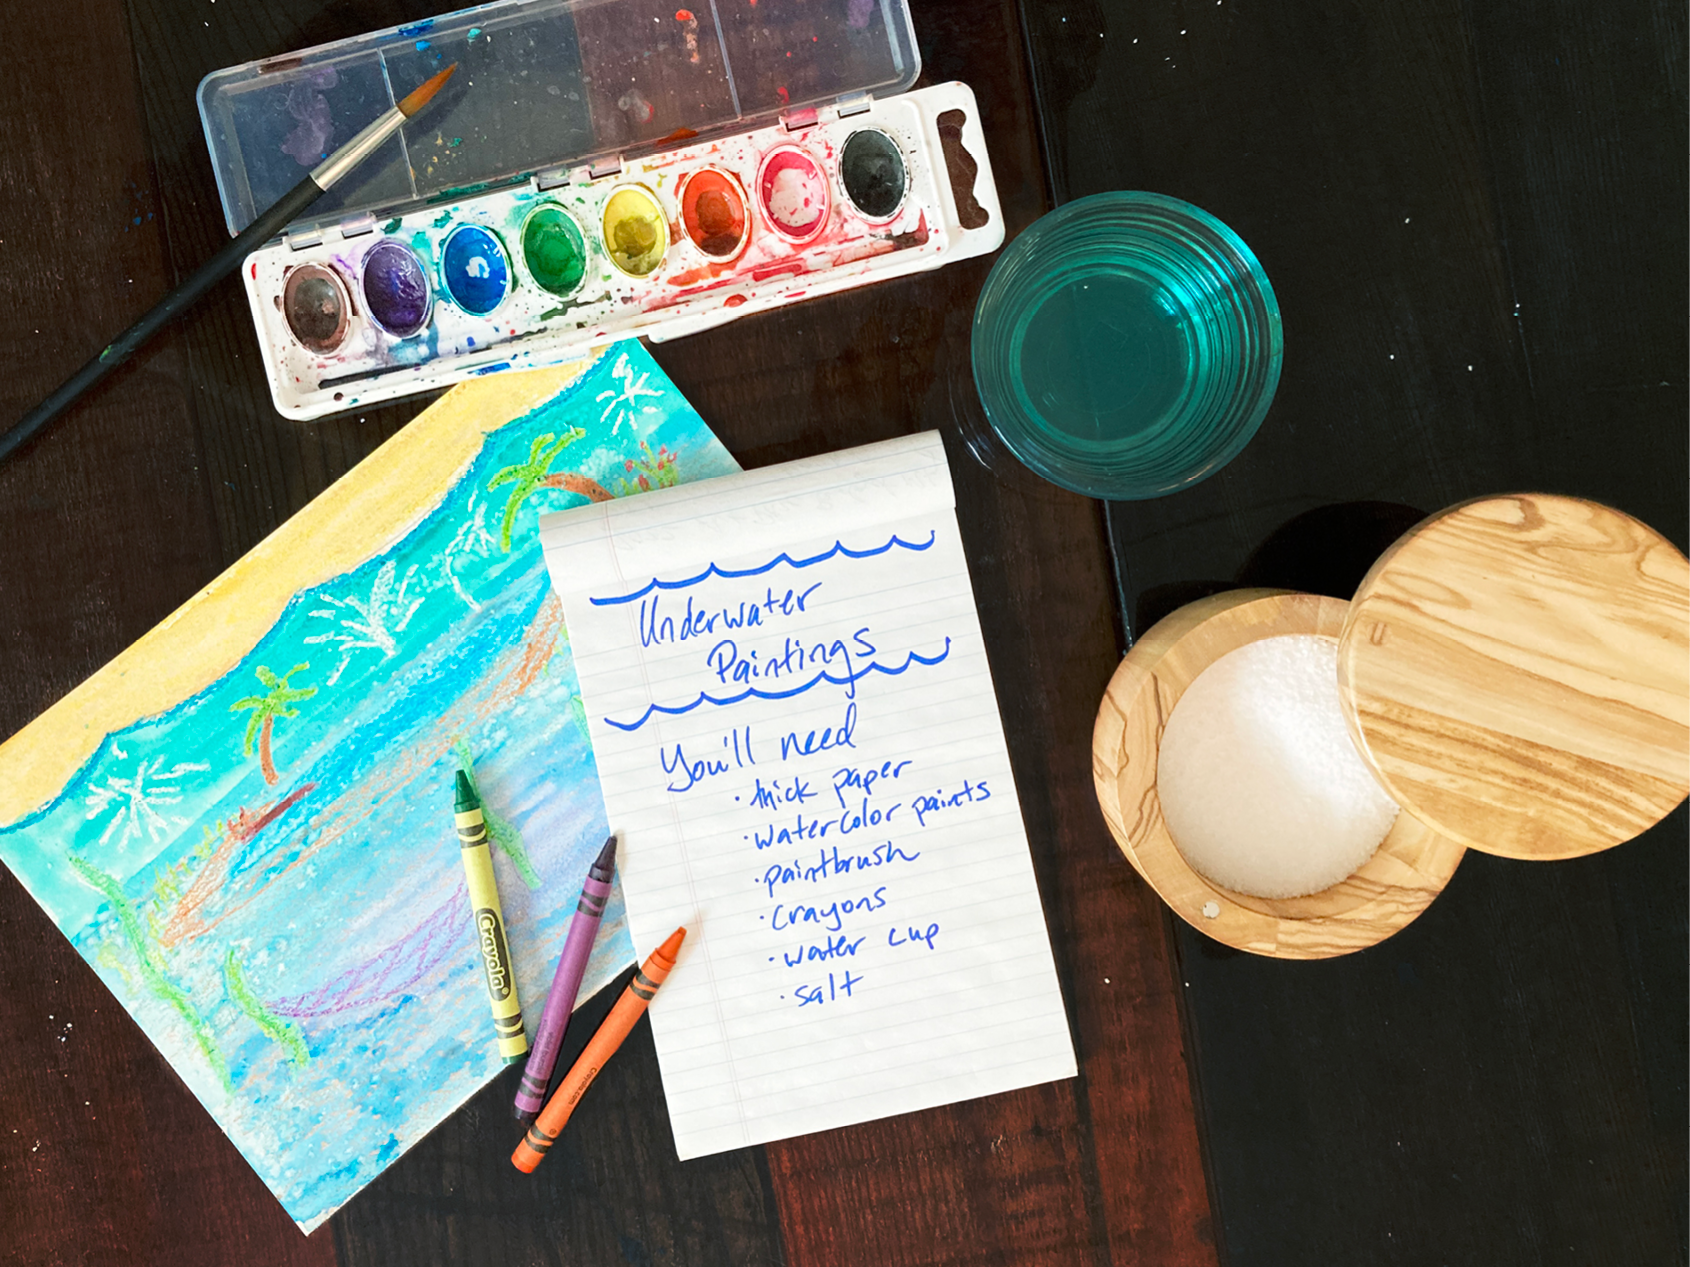 Underwater
Paintings
You'll need
· thick paper
· watercolor paints
· paintbrush
· crayons
· water cup
· salt
Crayola